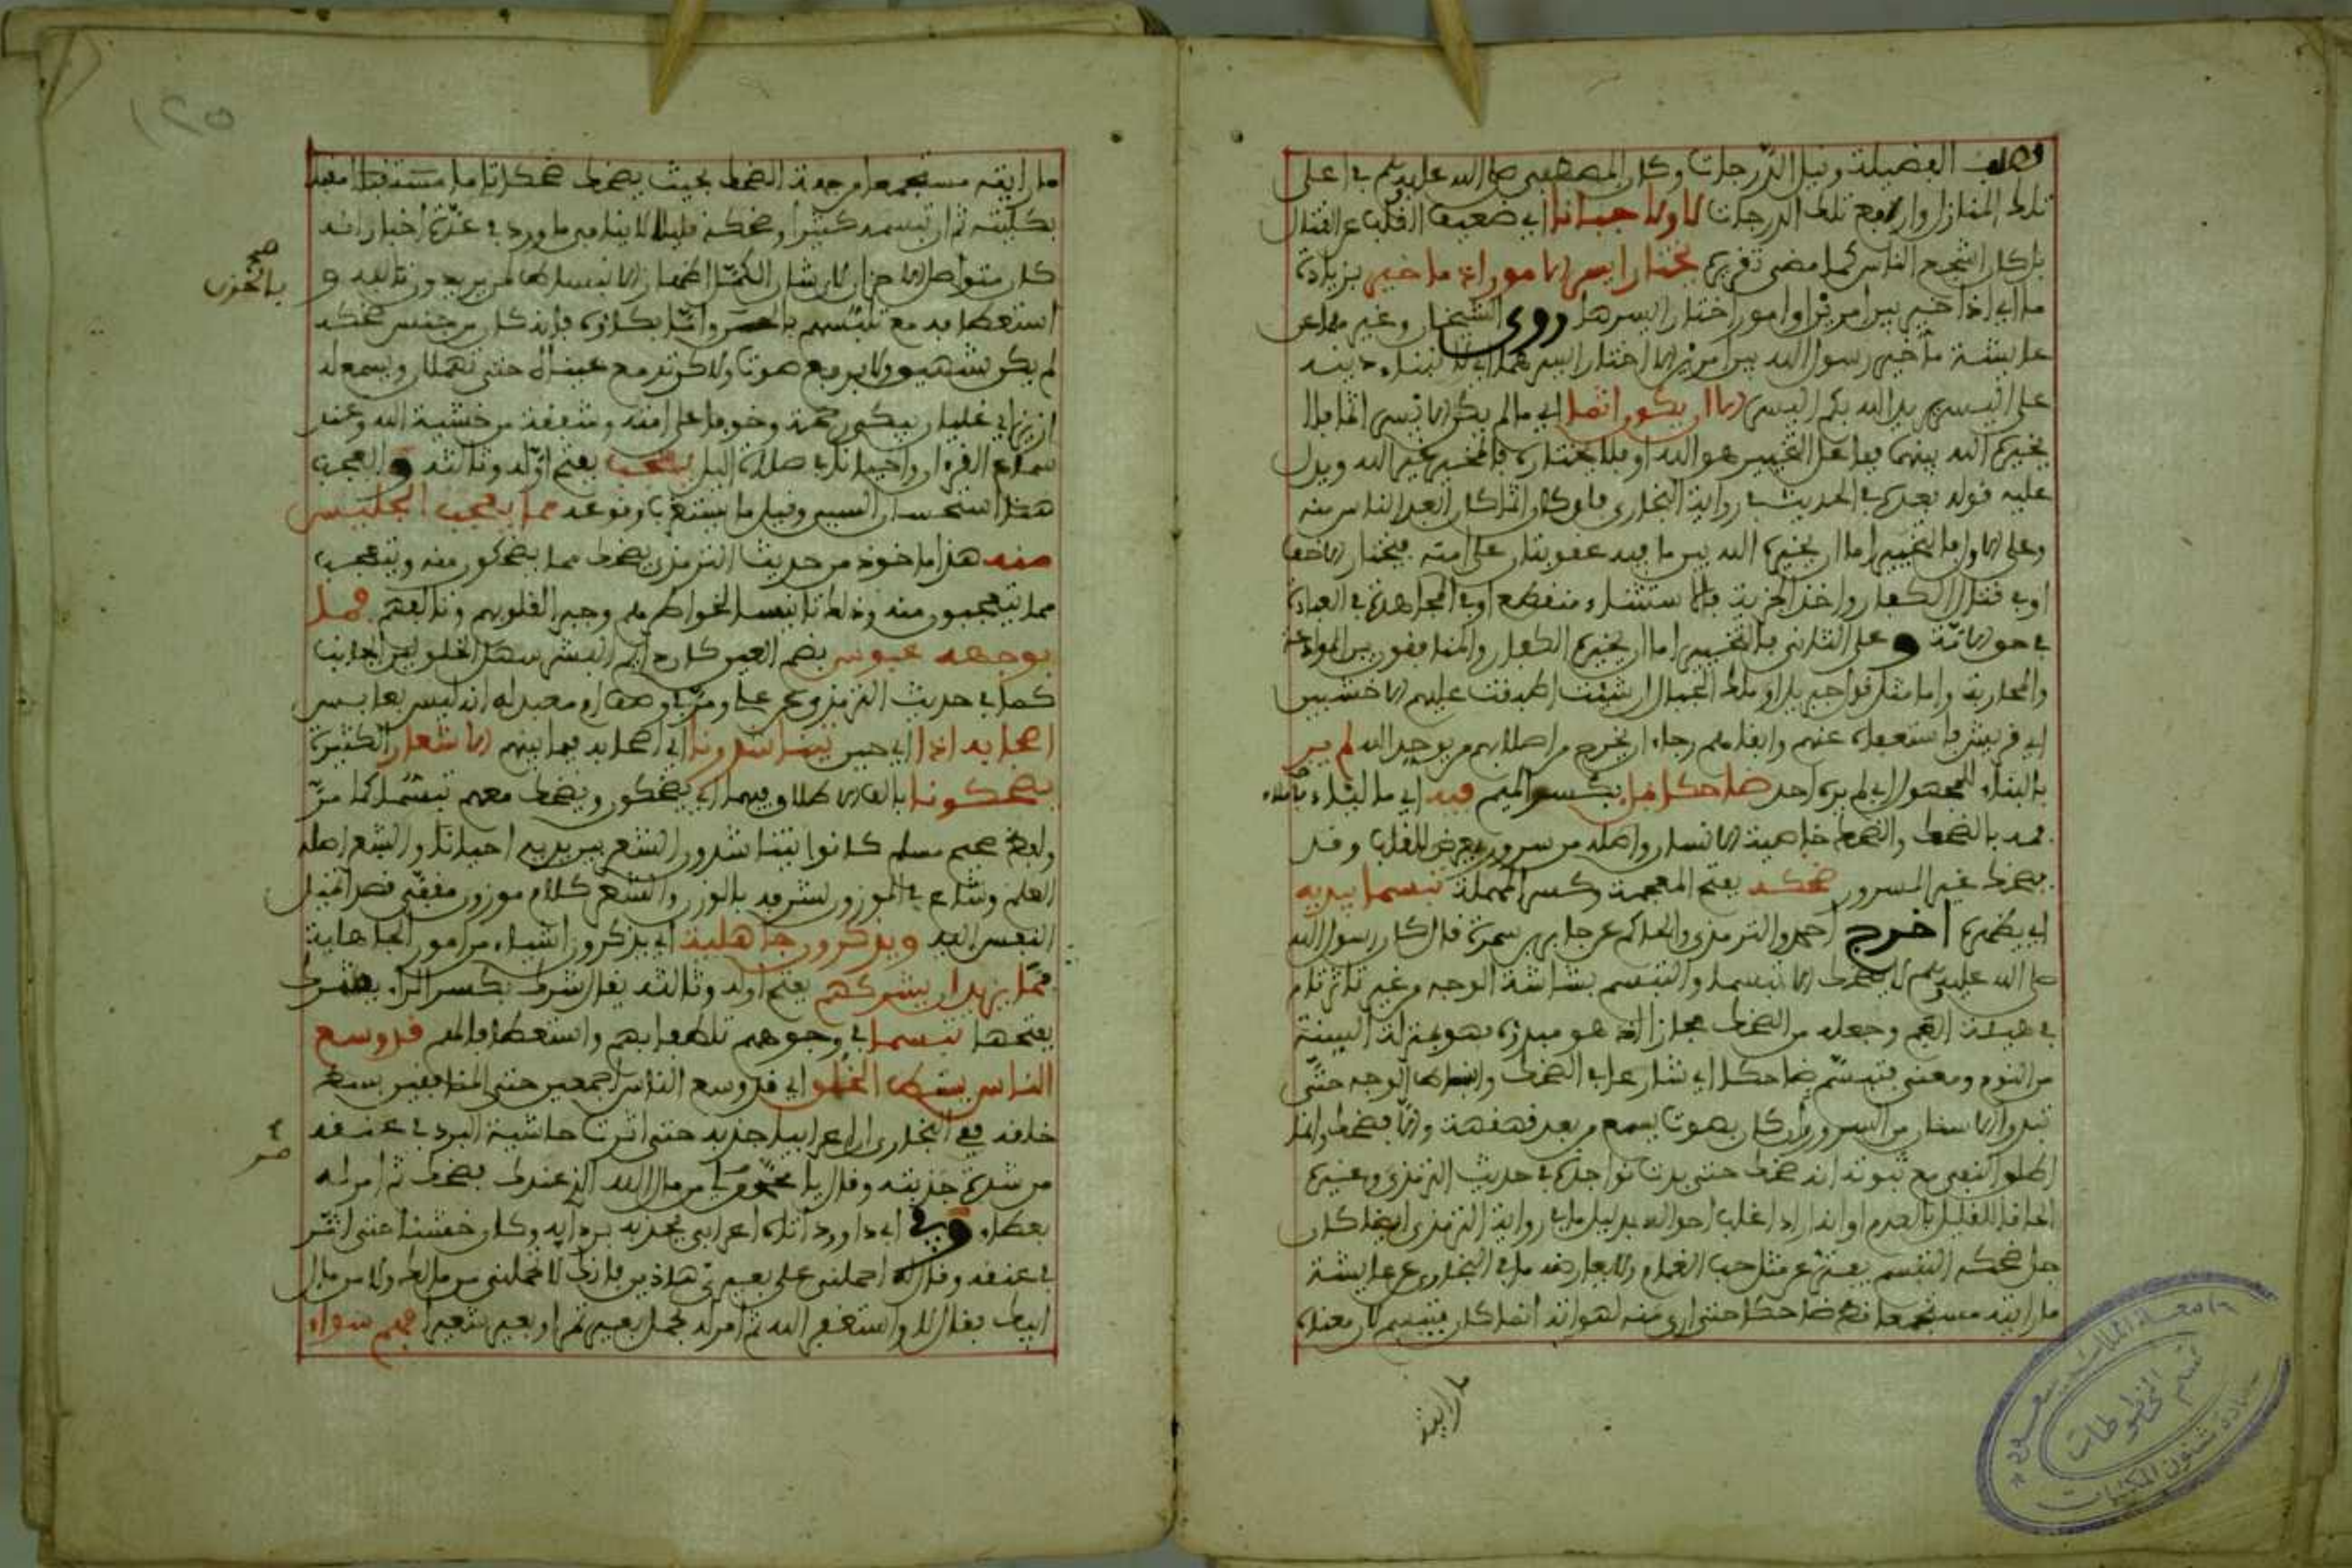 وطلب الفضيلة ونيل الدرجات وكان المصطفى صلى الله عليه وسلم في اعلى
تلك المنازل وارفع تلك الدرجات لا ولا جبانا اي ضعيف القلب عن القتال
بل كان اشجع الناس كما مضى تقريره يختار ايسر الامور اذا ما خير بزيادة
ما اي اذا خير بين امرين او امور اختار ايسرها روى الشيخان وغيرهما عن
عايشة ما خير رسول الله بين امرين الا اختار ايسرهما اي لبناء دينه
على اليسر يريد الله بكم اليسر الا ان يكون اثما اي ما لم يكن الايسر اثما فلا
يخيره الله بينهما فاعل التخيير هو الله او فلا يختاره فالمخير غير الله ويدل
عليه قوله بعده في الحديث في رواية البخاري فان كان اثما كان ابعد الناس منه
وعلى الاول فالتخيير اما ان يخيره الله بين ما فيه عقوبتان على امته فيختار الاخف
او في قتال الكفار واخذ الجزية فالاستثناء منقطع او في المجاهدة في العبادة
في حق الامة وعلى الثاني فالتخيير اما ان يخيره الكفار والمنافقون بين الموادعة
والمحاربة واما مثل قول جبريل او ملك الجبال ان شئت اطبقت عليهم الاخشبين
اي قريش فاستعفاه عنهم وابقاهم رجاء ان يخرج من اصلابهم من يوحد الله لم ير
بالبناء للمجهول اي لم يره احد ضاحكا فا بكسر الميم فيه اي مالئا
فمه بالضحك والضحك خاصية الانسان واصله من سرور يعرض للقلب وقد
يضحك غير المسرور ضحكه بفتح المعجمة وكسر المهملة تبسما يبديه
اي يظهره اخرج احمد والترمذي والحاكم عن جابر بن سمرة قال كان رسول الله
صلى الله عليه وسلم لا يضحك الا تبسما والتبسم بشاشة الوجه من غير تاثر تام
في هيئة الفم وجعله من الضحك مجازا اذ هو مبدؤه فهو بمنزلة السنة
من النوم ومعنى فتبسم ضاحكا اي شارعا في الضحك وانبساط الوجه حتى
تبدو الاسنان من السرور وان كان بصوت يسمع من بعد فقهقهة والا فضحك وانما
اطلق النفي مع ثبوت انه ضحك حتى بدت نواجذه في حديث الترمذي وغيره
الحاقا للقليل بالعدم او انه اراد اغلب احواله بدليل ما في رواية الترمذي ايضا كان
جل ضحكه التبسم يفتر عن مثل حب الغمام ولا يعارضه ما في البخاري عن عايشة
ما رايته مستجمعا قط ضاحكا حتى ارى منه لهواته انما كان يتبسم لان معناه
ما رايته
ما رايته مستجمعا من جهة الضحك بحيث يضحك ضحكا تاما مقبلا
بكليته ثم ان تبسمه كثيرا وضحكه قليلا لا ينافي ما ورد في عدة اخبار انه
كان متواصل الاحزان لان شان الكمل اظهار الانبساط لمن يريدون تالفه و
استعطافه مع تلبسهم بالحزن واما بكاؤه فانه كان من جنس ضحكه
صح
بالحزن
لم يكن بشهيق ولا برفع صوت ولكن تدمع عيناه حتى تهملان ويسمع له
ازيز اي غليان يبكي رحمة وخوفا على امته وشفقة من خشية الله وعند
سماع القران واحيانا في صلاة الليل يعجب بفتح اوله وثالثه والعجب
هنا استحسان الشيء وقيل ما يستغرب وقوعه مما يعجب الجليس
منه هذا ماخوذ من حديث الترمذي يضحك مما يضحكون منه ويتعجب
مما يتعجبون منه وذلك تانيسا لخواطرهم وجبرا لقلوبهم وتالفهم فما
بوجهه عبوس بضم العين كان دايم البشر سهل الخلق لين الجانب
كما في حديث الترمذي عن علي ومر في وصف ام معبد له انه ليس بعابس
اصحابه اذا اي حين يتناشدونا اي اصحابه فيما بينهم الاشعار الكثيرة
يضحكونا بالف الاطلاق فيهما اي يضحكون ويضحك معهم تبسما كما مر
ولفظ صحيح مسلم كانوا يتناشدون الشعر بين يديه احيانا والشعر اصله
العلم وشاع في الموزون لشرفه بالوزن والشعر كلام موزون مقفى قصدا تميل
النفس اليه ويذكرون جاهلية اي يذكرون اشياء من امور الجاهلية
فما يزيد ان يشركهم بفتح اوله وثالثه يقال شرك بكسر الراء يشرك
بفتحها تبسما في وجوههم تلطفا بهم واستعطافا لهم قد وسع
الناس ببسط الخلق اي قد وسع الناس اجمعين حتى المنافقين بسط
خلقه ففي البخاري ان اعرابيا جذبه حتى اثرت حاشية البرد في عنقه
من شدة جذبته وقال يا محمد مر لي من مال الله الذي عندك فضحك ثم امر له
بعطاء وفي ابي داوود اتاه اعرابي فجذبه بردايه وكان خشنا حتى اثر
في عنقه وقال له احملني على بعيري هاذين فانك لا تحملني من مالك ولا من مال
ابيك فقال لا واستغفر الله ثم امر له بحمل بعير تمرا وبعير شعيرا فهم سواء
١٢٥
جامعة الملك سعود
قسم المخطوطات
عمادة شئون المكتبات